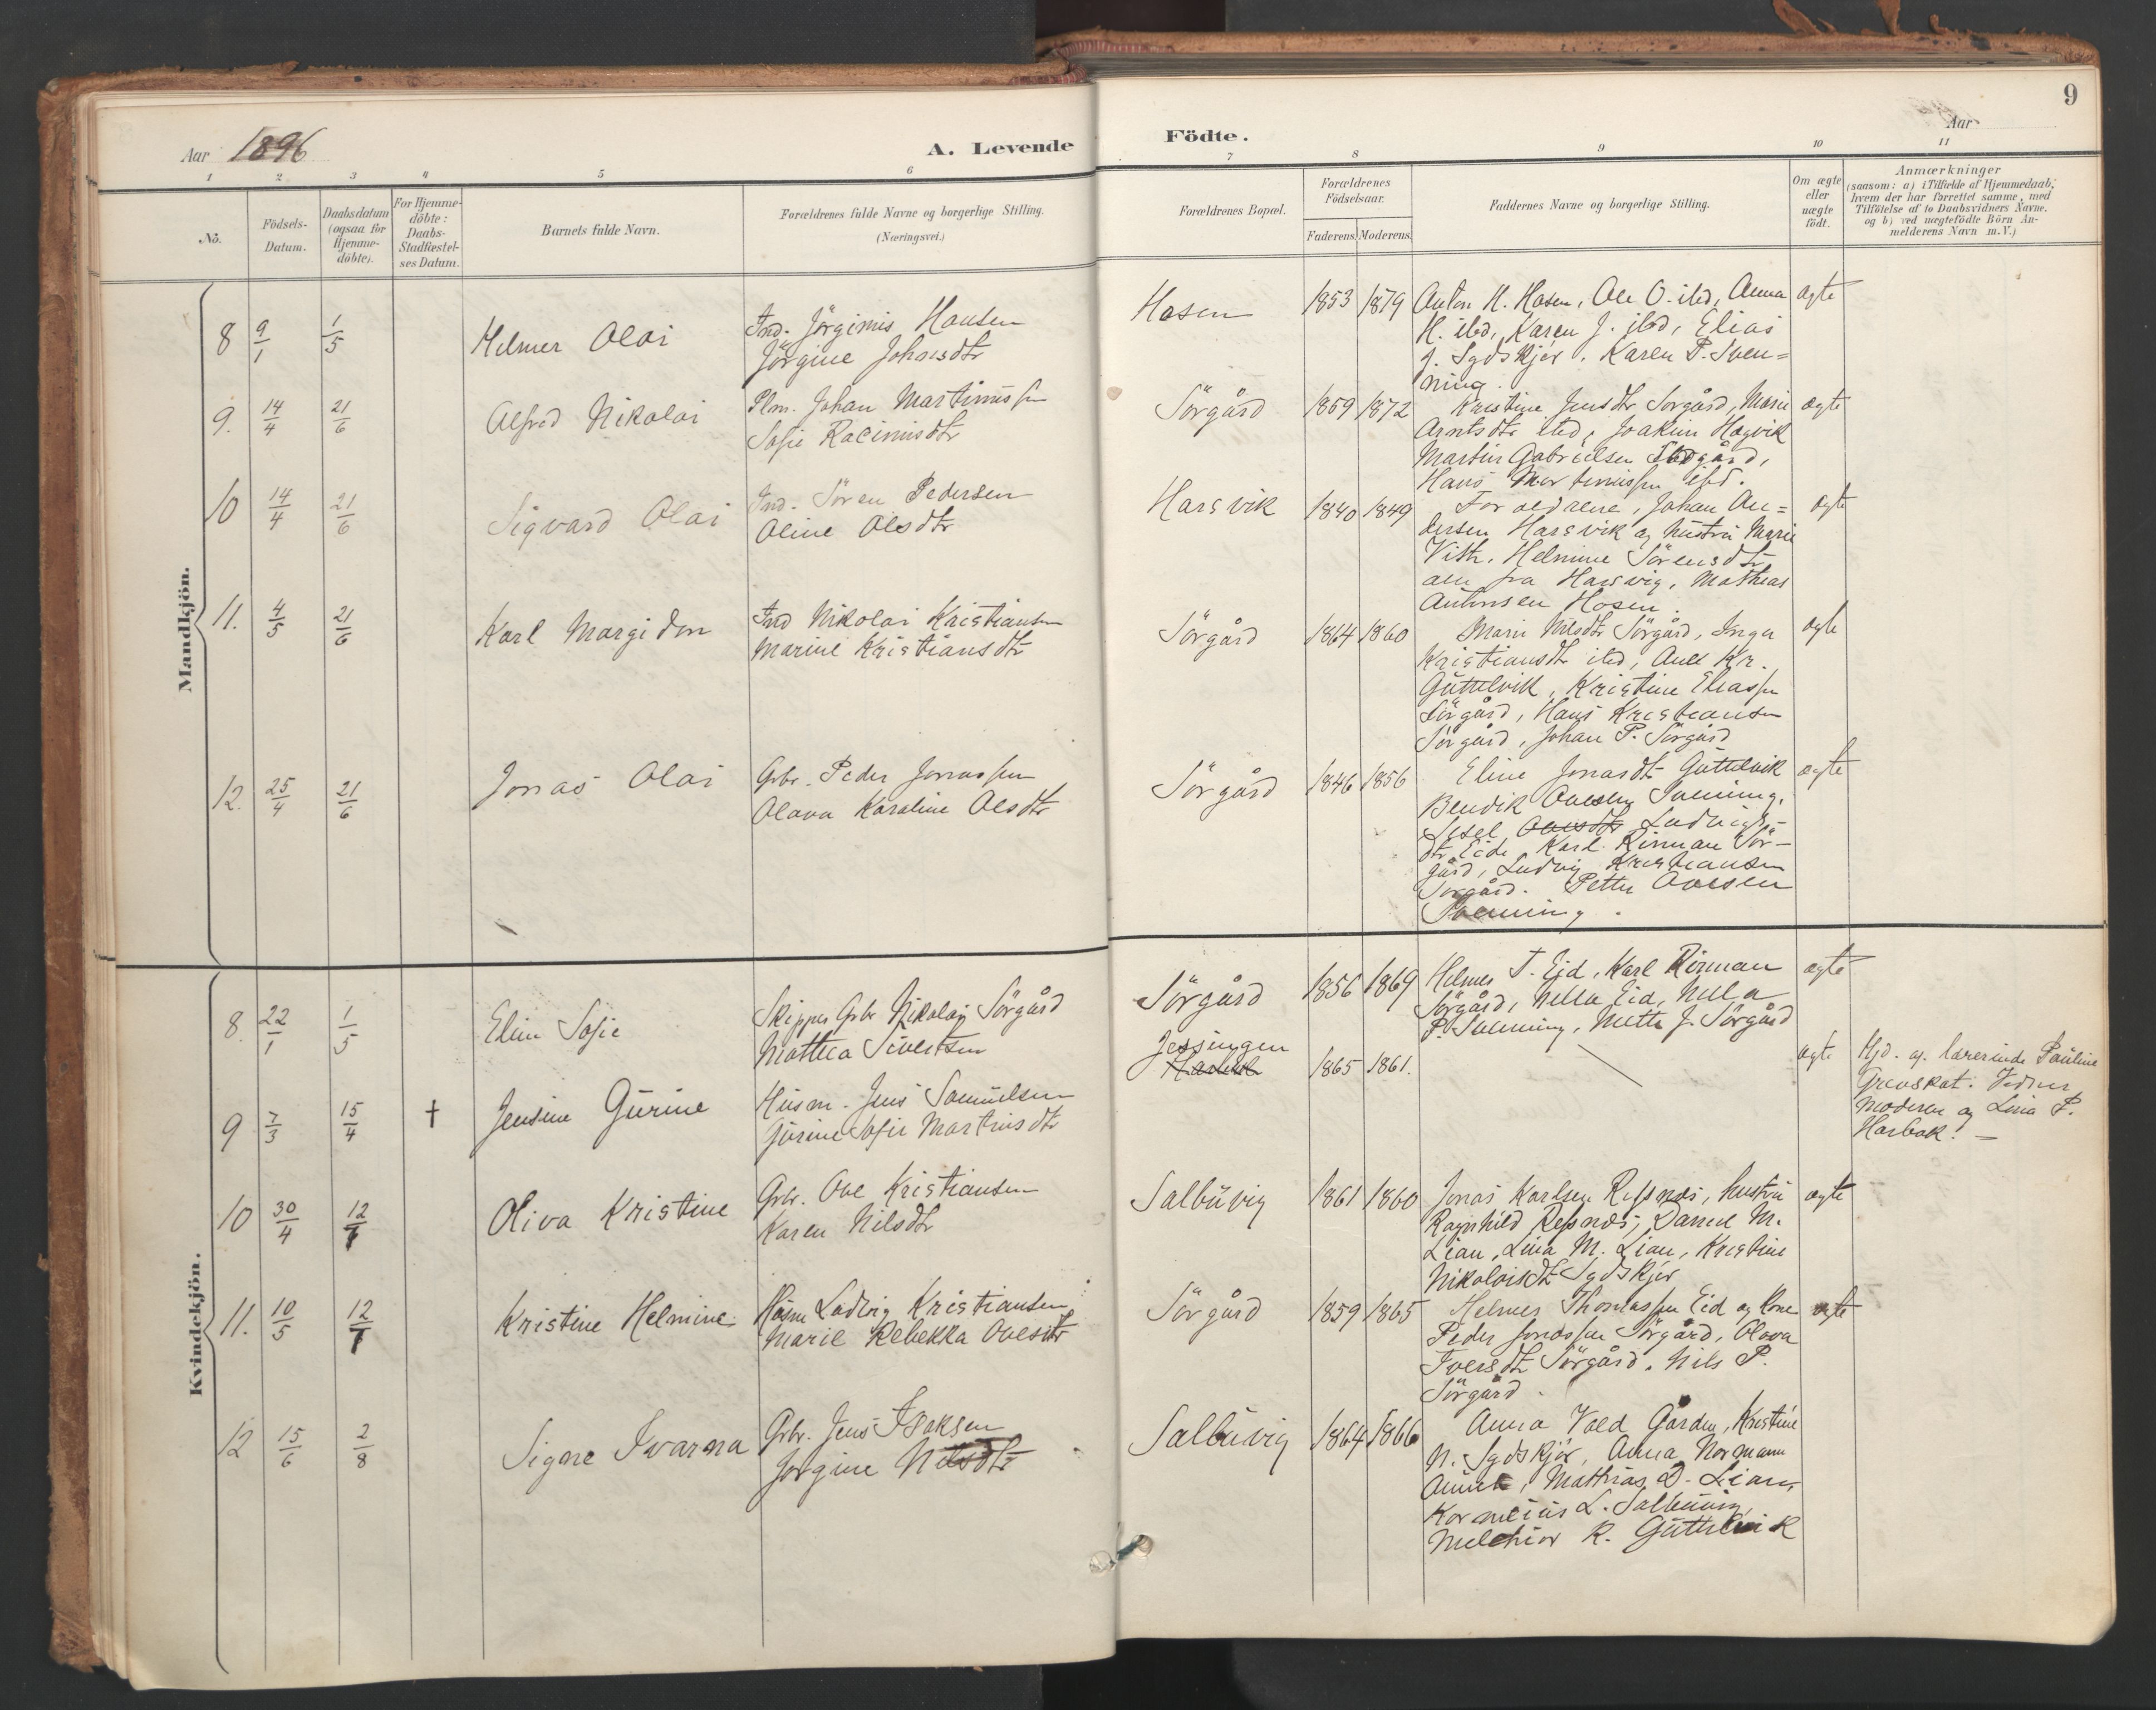 9
Aar 1896
A. Levende Födte.
Aar
1 2 3 4 5 6 7 8 9 10 11
No.
Födsels-
Datum.
Daabsdatum
(ogsaa for
Hjemme-
döbte).
For Hjemme-
döbte:
Daabs-
Stadfæstel-
ses Datum.
Barnets fulde Navn.
Forældrenes fulde Navne og borgerlige Stilling.
(Næringsvei.)
Forældrenes Bopæl.
Forældrenes
Födselsaar.
Faderens. Moderens.
Faddernes Navne og borgerlige Stilling.
Om ægte
eller
uægte
födt.
Anmærkninger
(saasom: a) i Tilfælde af Hjemmedaab,
hvem der har forrettet samme, med
Tilföielse af to Daabsvidners Navne,
og b) ved uægtefödte Börn An-
melderens Navn m.V.)
Mandkjön.
8 9/1 1/5 Helmer Olai
Ind. Jörginus Hansen
Jörgine Johansdtr
Hosen 1853 1879
Anton H. Hosen, Ole O. ibd, Anna
H. ibd, Karen J. ibd, Elias
J. Sydskjör, Karen P. Sven=
ning.
ægte
9. 14/4 21/6 Alfred Nikolai
Plm. Johan Martinussen
Sofie
Sörgård 1859 1872
Kristine Jensdtr Sörgård, Marie
Arntsdtr ibd, Joakim Hagvik
Martin Gabrielsen
Hans Martinussen ibd.
ægte
10 14/4 21/6 Sigvard Olai
Ind. Sören Pedersen
Oline Olsdtr
Harsvik 1840 1849
Forældrene, Johan An=
dersen Harsvik og hustru Marie
Vith. Helmine Sörensdtr
alle fra Harsvig, Mathias
Antonsen Hosen.
ægte
11. 4/5 21/6 Karl Margidon
Ind Nikolai Kristiansen
Marine Kristiansdtr
Sörgård 1864 1860
Marie Nilsdtr Sörgård, Inga
Kristiansdtr ibd, Kr.
Guttelvik, Kristine Eliassen
Sörgård, Hans Kristiansen
Sörgård, Johan P. Sörgård
ægte
12. 25/4 21/6 Jonas Olai
Grbr. Peder Jonassen
Olava Karoline Olsdtr
Sörgård 1846 1856
Eline Jonasdtr Guttelvik
Bendik Ovesen Svenning,
Sesel Ovesdtr Ludvigs-
dtr Eide, Karl Rinnan Sör-
gård, Ludvig Kristiansen
Sörgård. Petter Ovesen
Svenning.
ægte
Kvindekjön.
8. 22/1 1/5 Elin Sofie
Skipper Grbr Nikolai Sörgård
Mattea Sivertsen
Sörgård 1856 1869
Helmer T. Eid, Karl Rinnan
Sörgård, Nella Eid, Nella
P. Svenning, Mette J. Sörgård
ægte
9 7/3 15/4 † Jensine Gurine
Husm. Jens Samuelsen
Gurine Sofie Martinsdtr
Jessingen
1865 1861.
ægte
Hjd. af lærerinde Pauline
Grenskat. Vidner
moderen og Lina P.
Harbak. —
10 30/4 12/7 Oliva Kristine
Grbr. Ove Kristiansen
Karen Nilsdtr
Salbuvig 1861 1860
Jonas Karlsen Repsnes, hustru
Ragnhild Repsnes, Daniel M.
Lian, Lina M. Lian, Kristine
Nikolaisdtr Sydskjör
ægte
11. 10/5 12/7 Kristine Helmine
Husm Ludvig Kristiansen
Marie Rebekka Ovesdtr
Sörgård 1859 1865
Helmer Thomassen Eid og kone
Peder Jonassen Sörgård, Olava
Iversdtr Sörgård. Nils P.
Sörgård.
ægte
12 15/6 2/8 Signe Ivarna
Grbr. Jens Isaksen
Jörgine Nilsdtr
Salbuvig 1864 1866
Anna Vold Gården, Kristine
N. Sydskjör, Anna Normann
Mathias D. Lian,
Kornelius L. Salbuvig,
Melchior R. Guttelvik